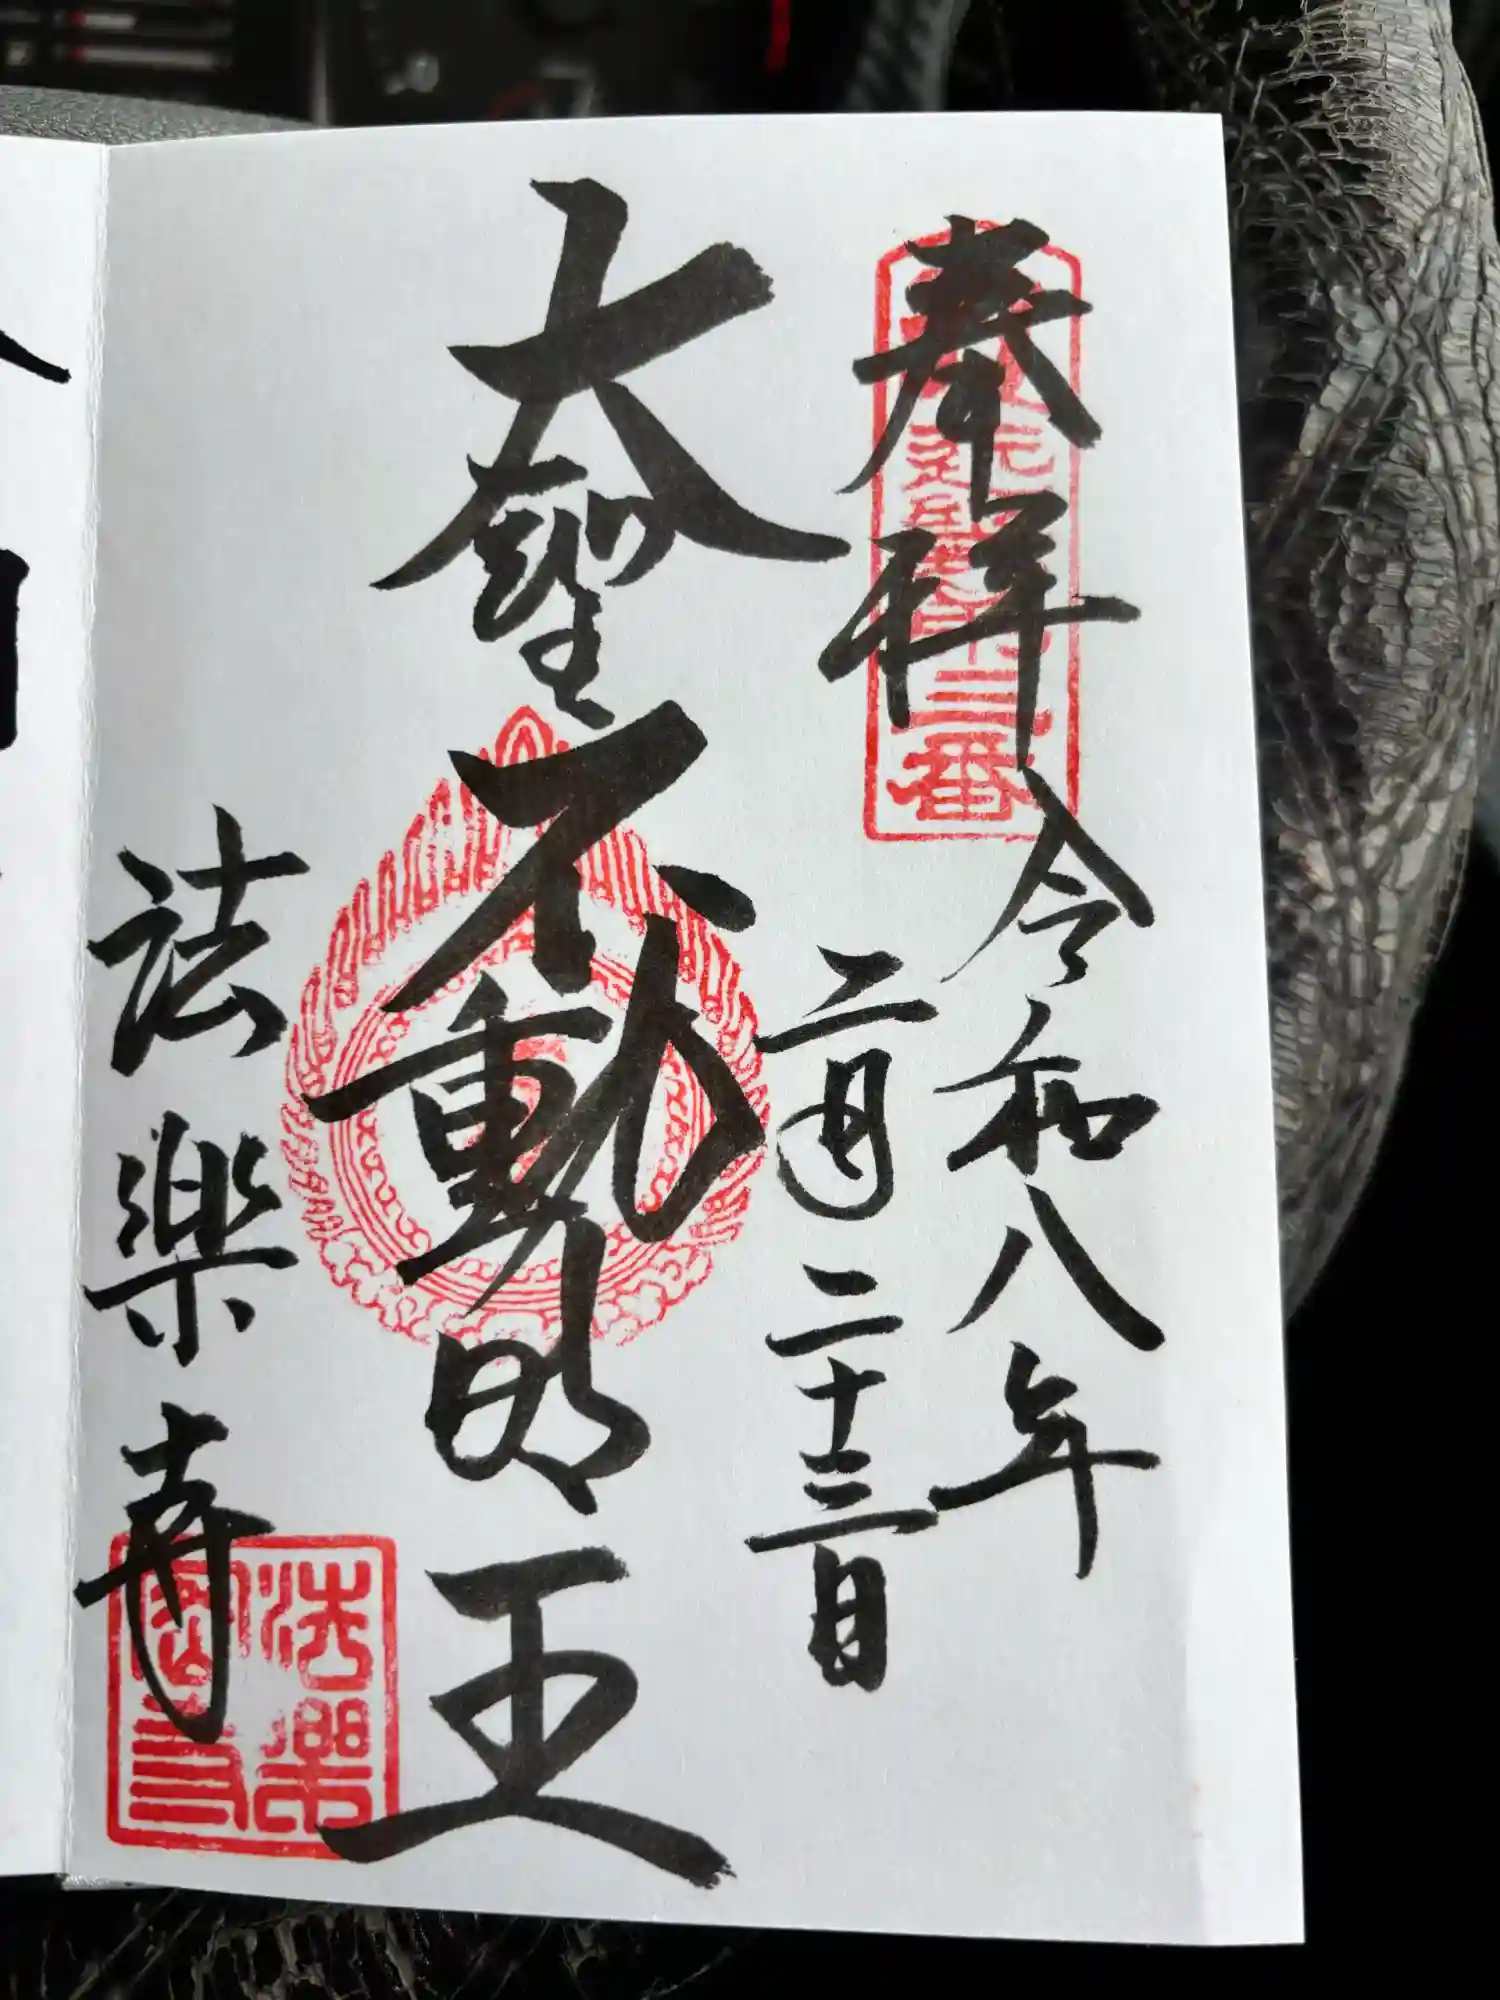 奉拝
令和八年
二月二十三日
大聖不動明王
法樂寺
三番
法樂